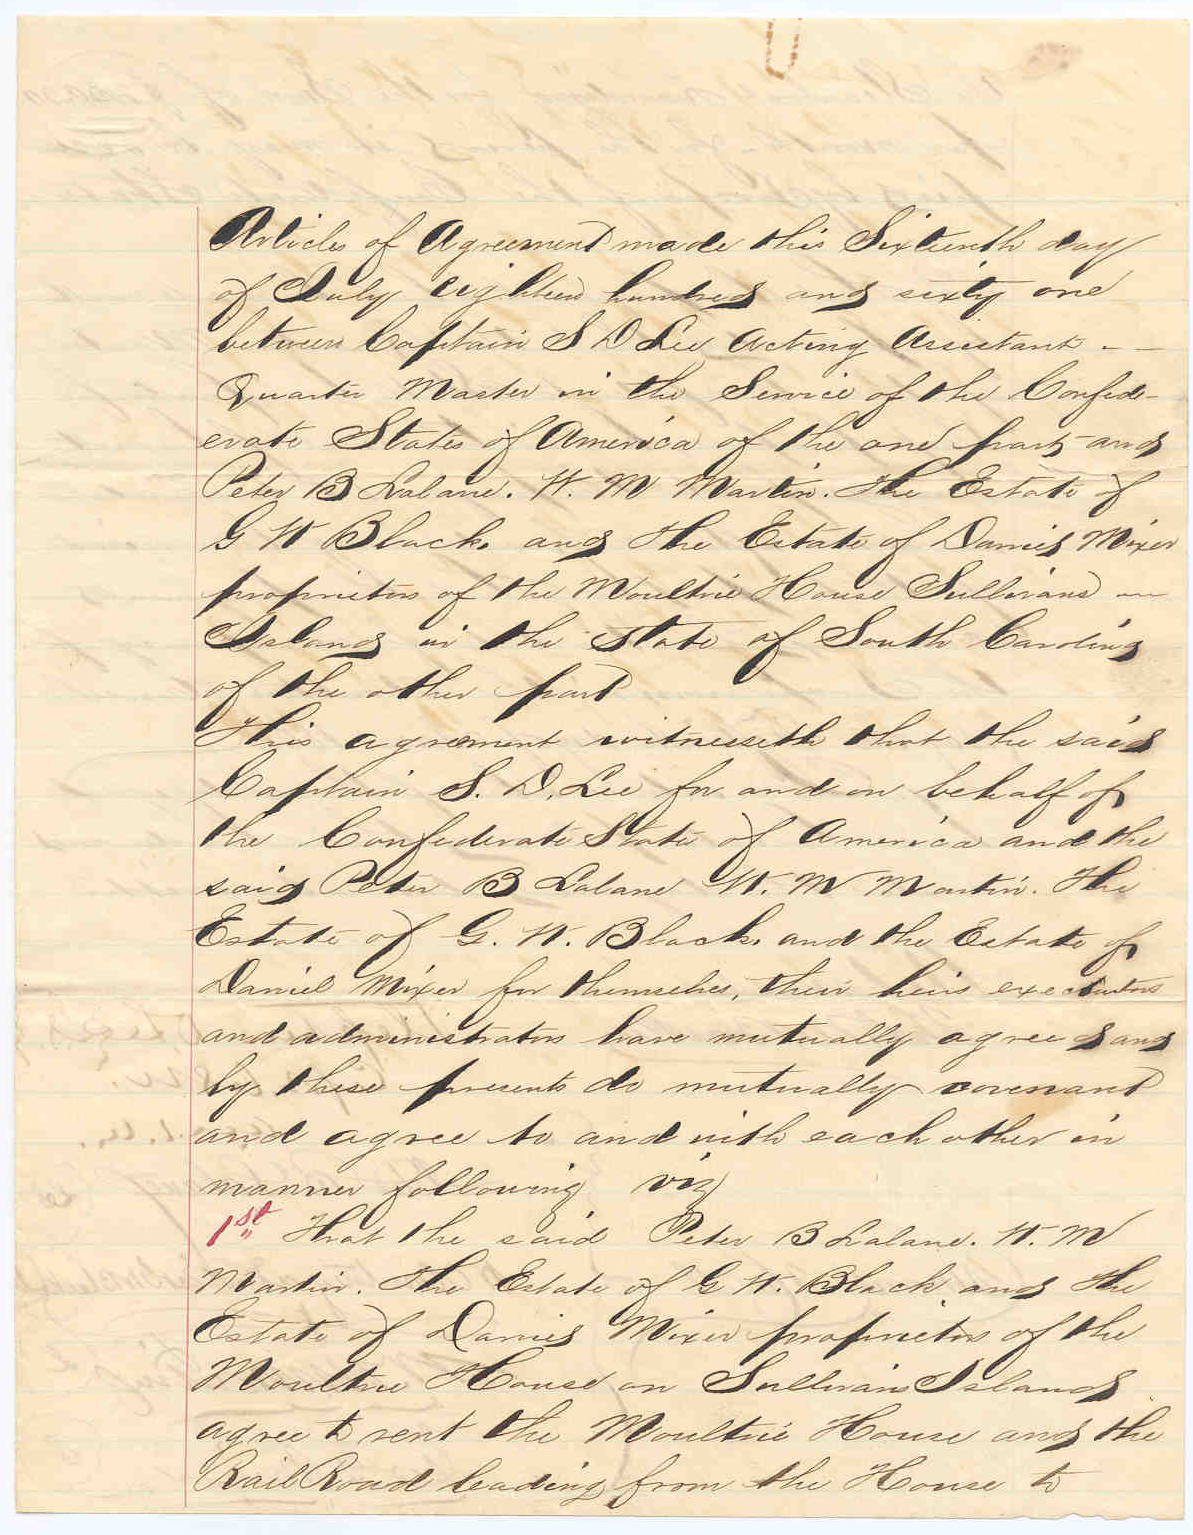 Articles of Agreement made this Sixteenth day
of July eighteen hundred and sixty one
between Captain S D Lee Acting Assistant - -
Quarter Master in the Service of the Confed-
erate States of America of the one part and
Peter B Lalane. W. M Martin. The Estate of
G W Black. and The Estate of Daniel Mixer
proprietors of the Moultrie House Sullivans -
Island in the State of South Carolina
of the other part
This agreement witnesseth that the said
Captain S. D. Lee for and on behalf of
the Confederate State of America and the
said Peter B Lalane W. M Martin. The
Estate of G. W. Black. and the Estate of
Daniel Mixer for themselves, their heirs executors
and administrators have mutually agreed and
by these presents do mutually covenant
and agree to and with each other in
manner following viz
1st That the said Peter B Lalane. W. M
Martin. The Estate of G W. Black and the
Estate of Daniel Mixer proprietors of the
Moultrie House on Sullivans Island
agree to rent the Moultrie House and the
Rail Road leading from the House to